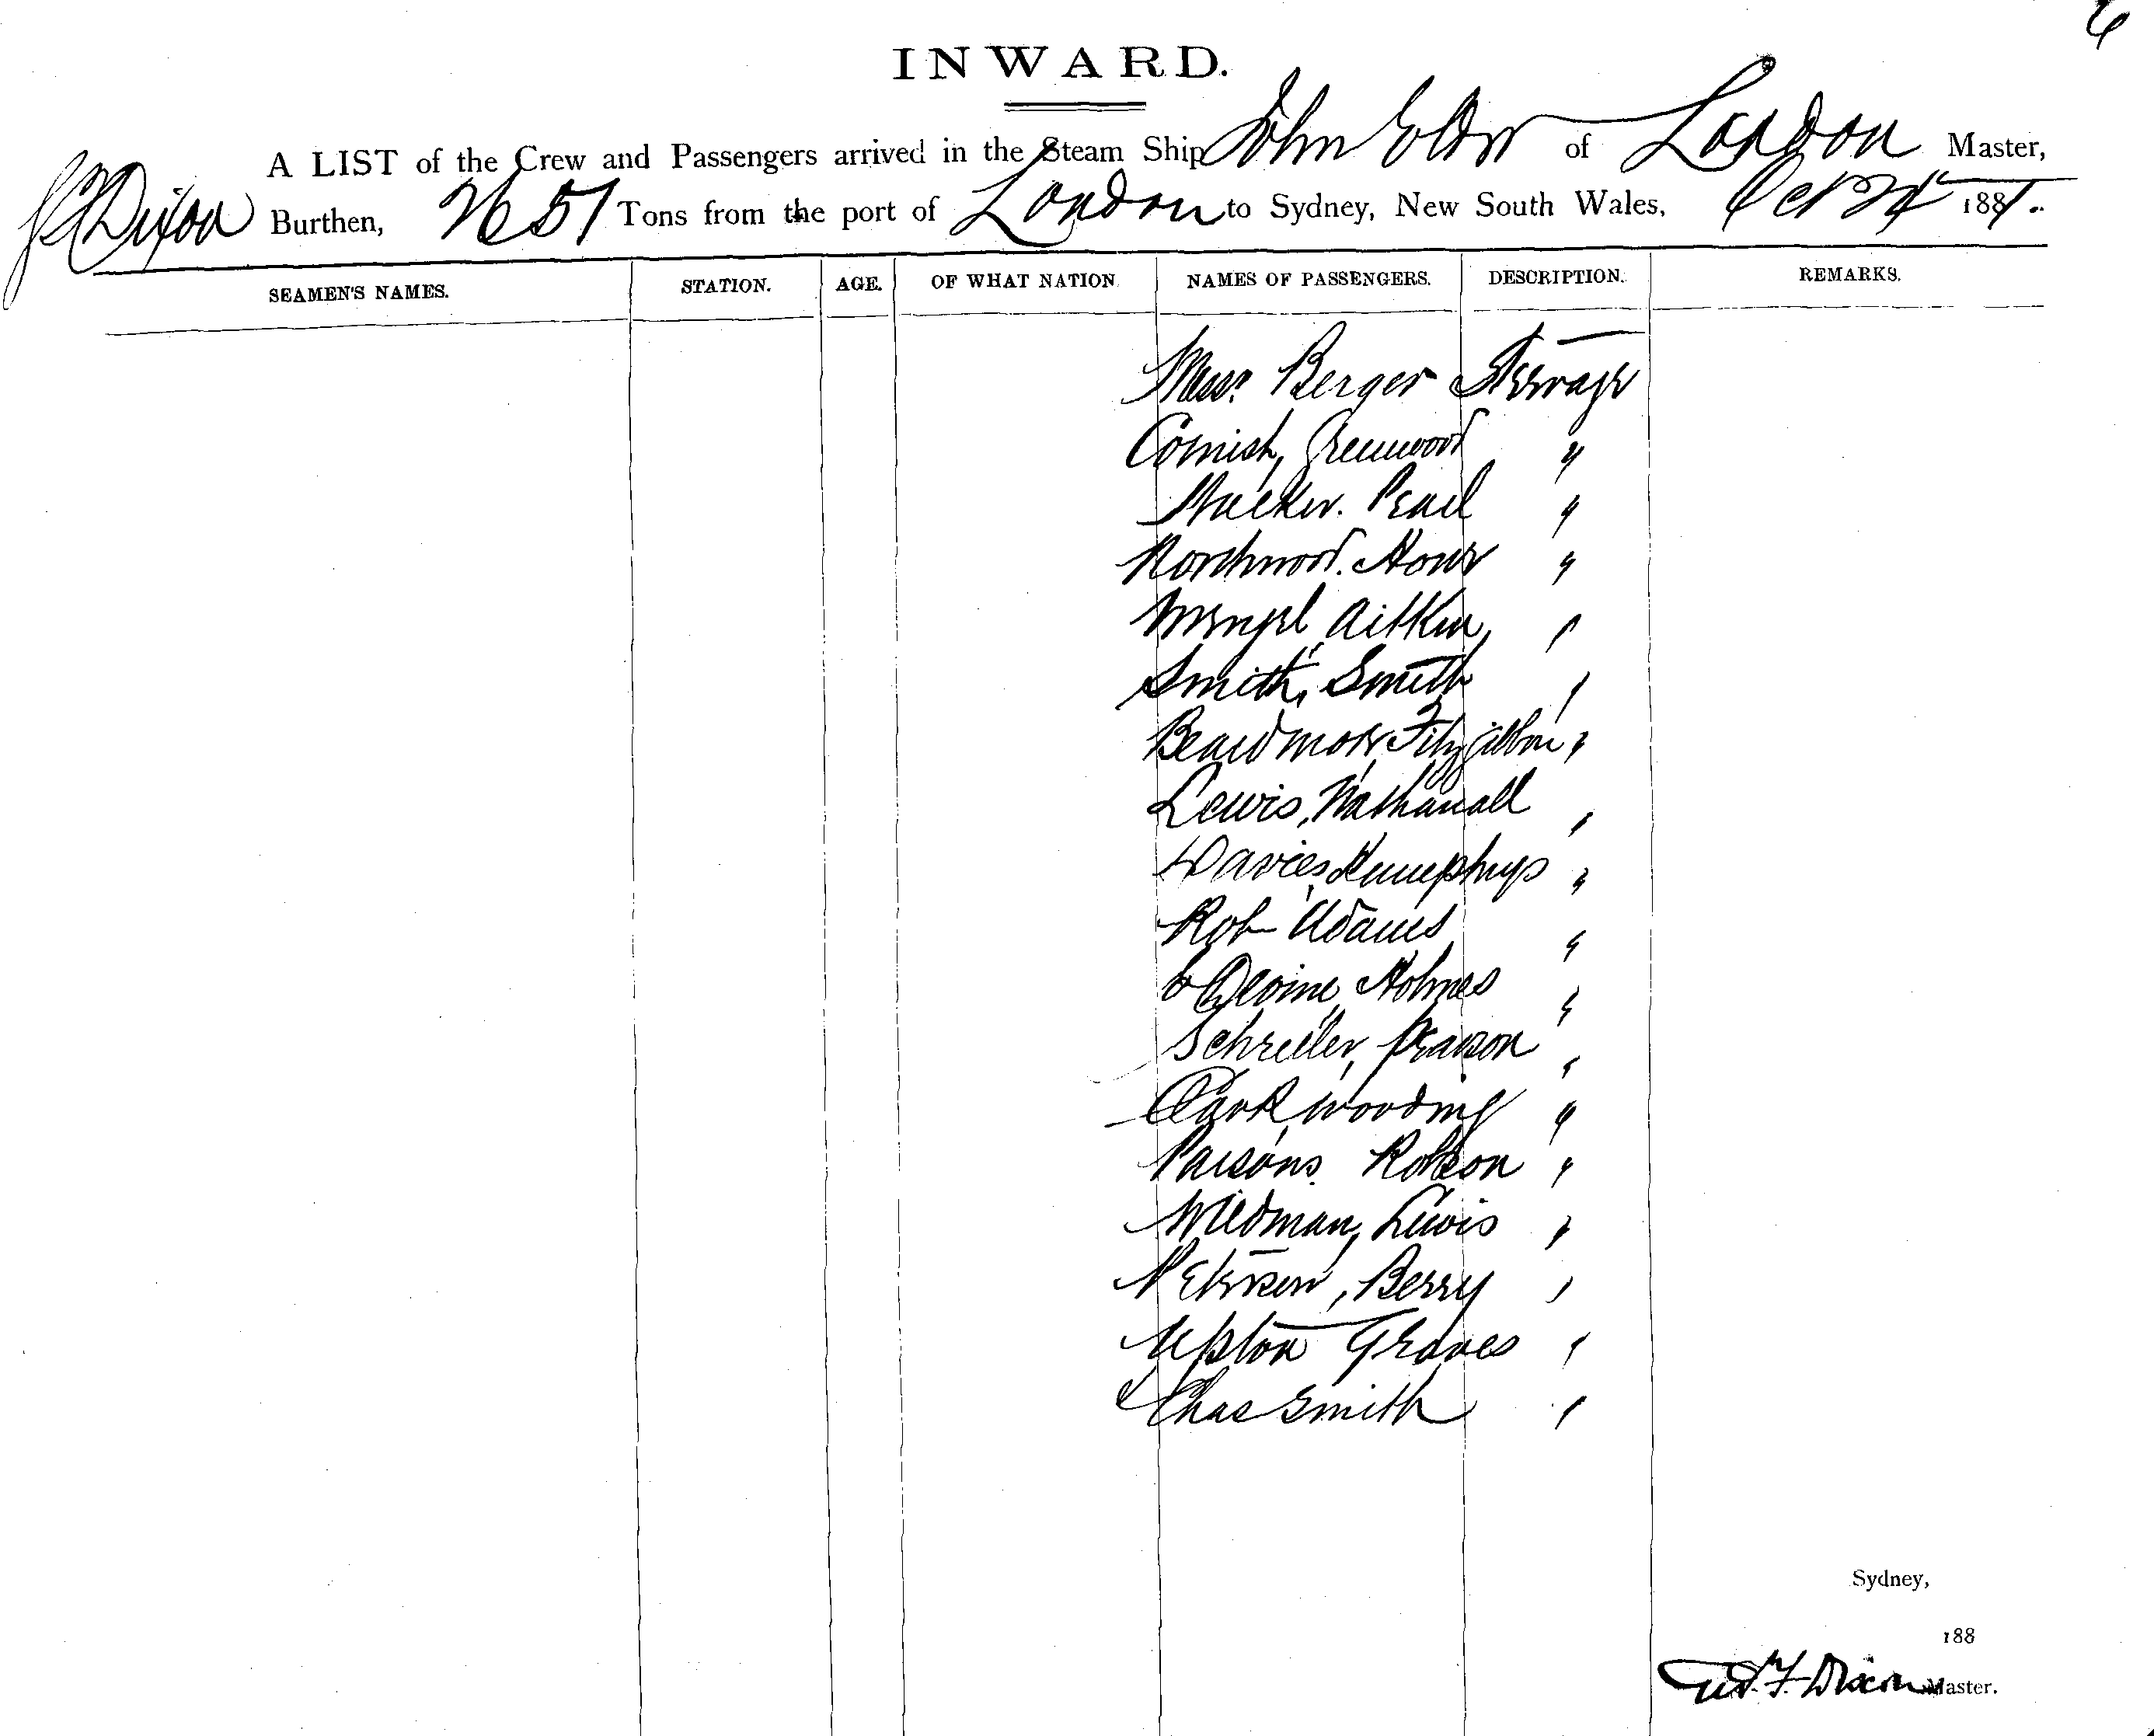 6
INWARD.
A LIST of the Crew and Passengers arrived in the Steam Ship John Elder of London Master,
Dixon Burthen, 2651 Tons from the port of London to Sydney, New South Wales, Oct 24 1881.
SEAMEN'S NAMES. STATION. AGE. OF WHAT NATION NAMES OF PASSENGERS. DESCRIPTION. REMARKS.
Messrs Berger Steerage
Cornish, Greenwood "
Pearl "
Northwood. Howe "
Mengel, Aitken, "
Smith, Smith "
Beardmore, Fitzgibbon "
Lewis, Nathanall "
Davies, Humphrys "
Rob Adams "
Holmes "
Schreiler, Pearson "
Clark, Wooding "
Parsons. Robson "
Wiedman, Lewis "
Petersen, Berry "
Upton Graves "
Chas Smith "
Sydney,
188
Dixon Master.